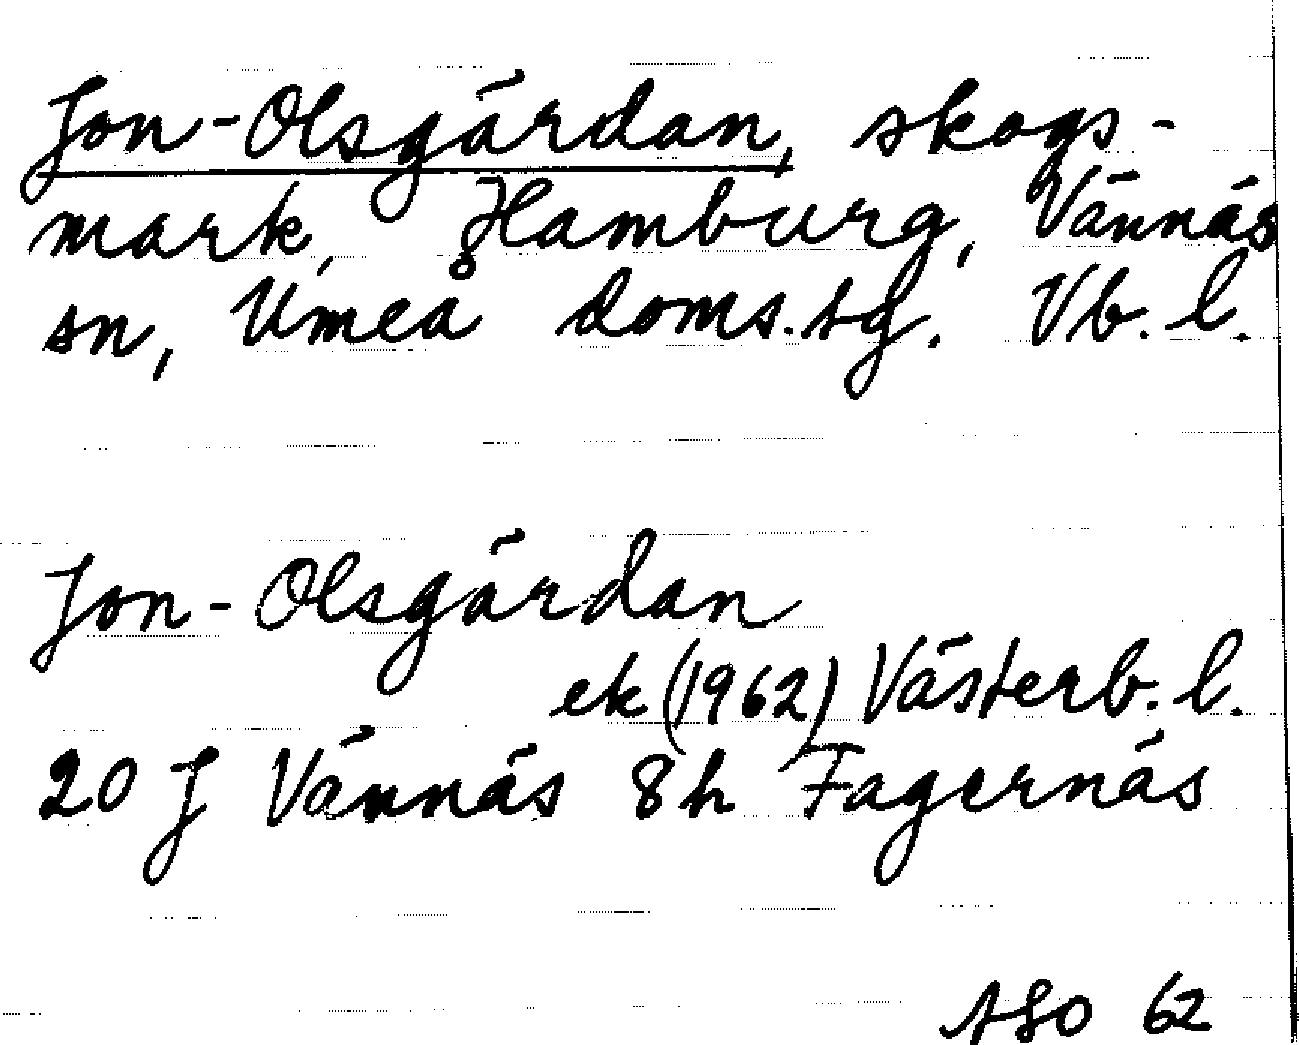 Jon-Olsgärdan, skogs-
mark, Hamburg, Vännäs
sn, Umeå doms.sg. Vb. l.
Jon-Olsgärdan
ek (1962) Västerb. l.
20 J Vännäs 8h Fagernäs
ASO 62